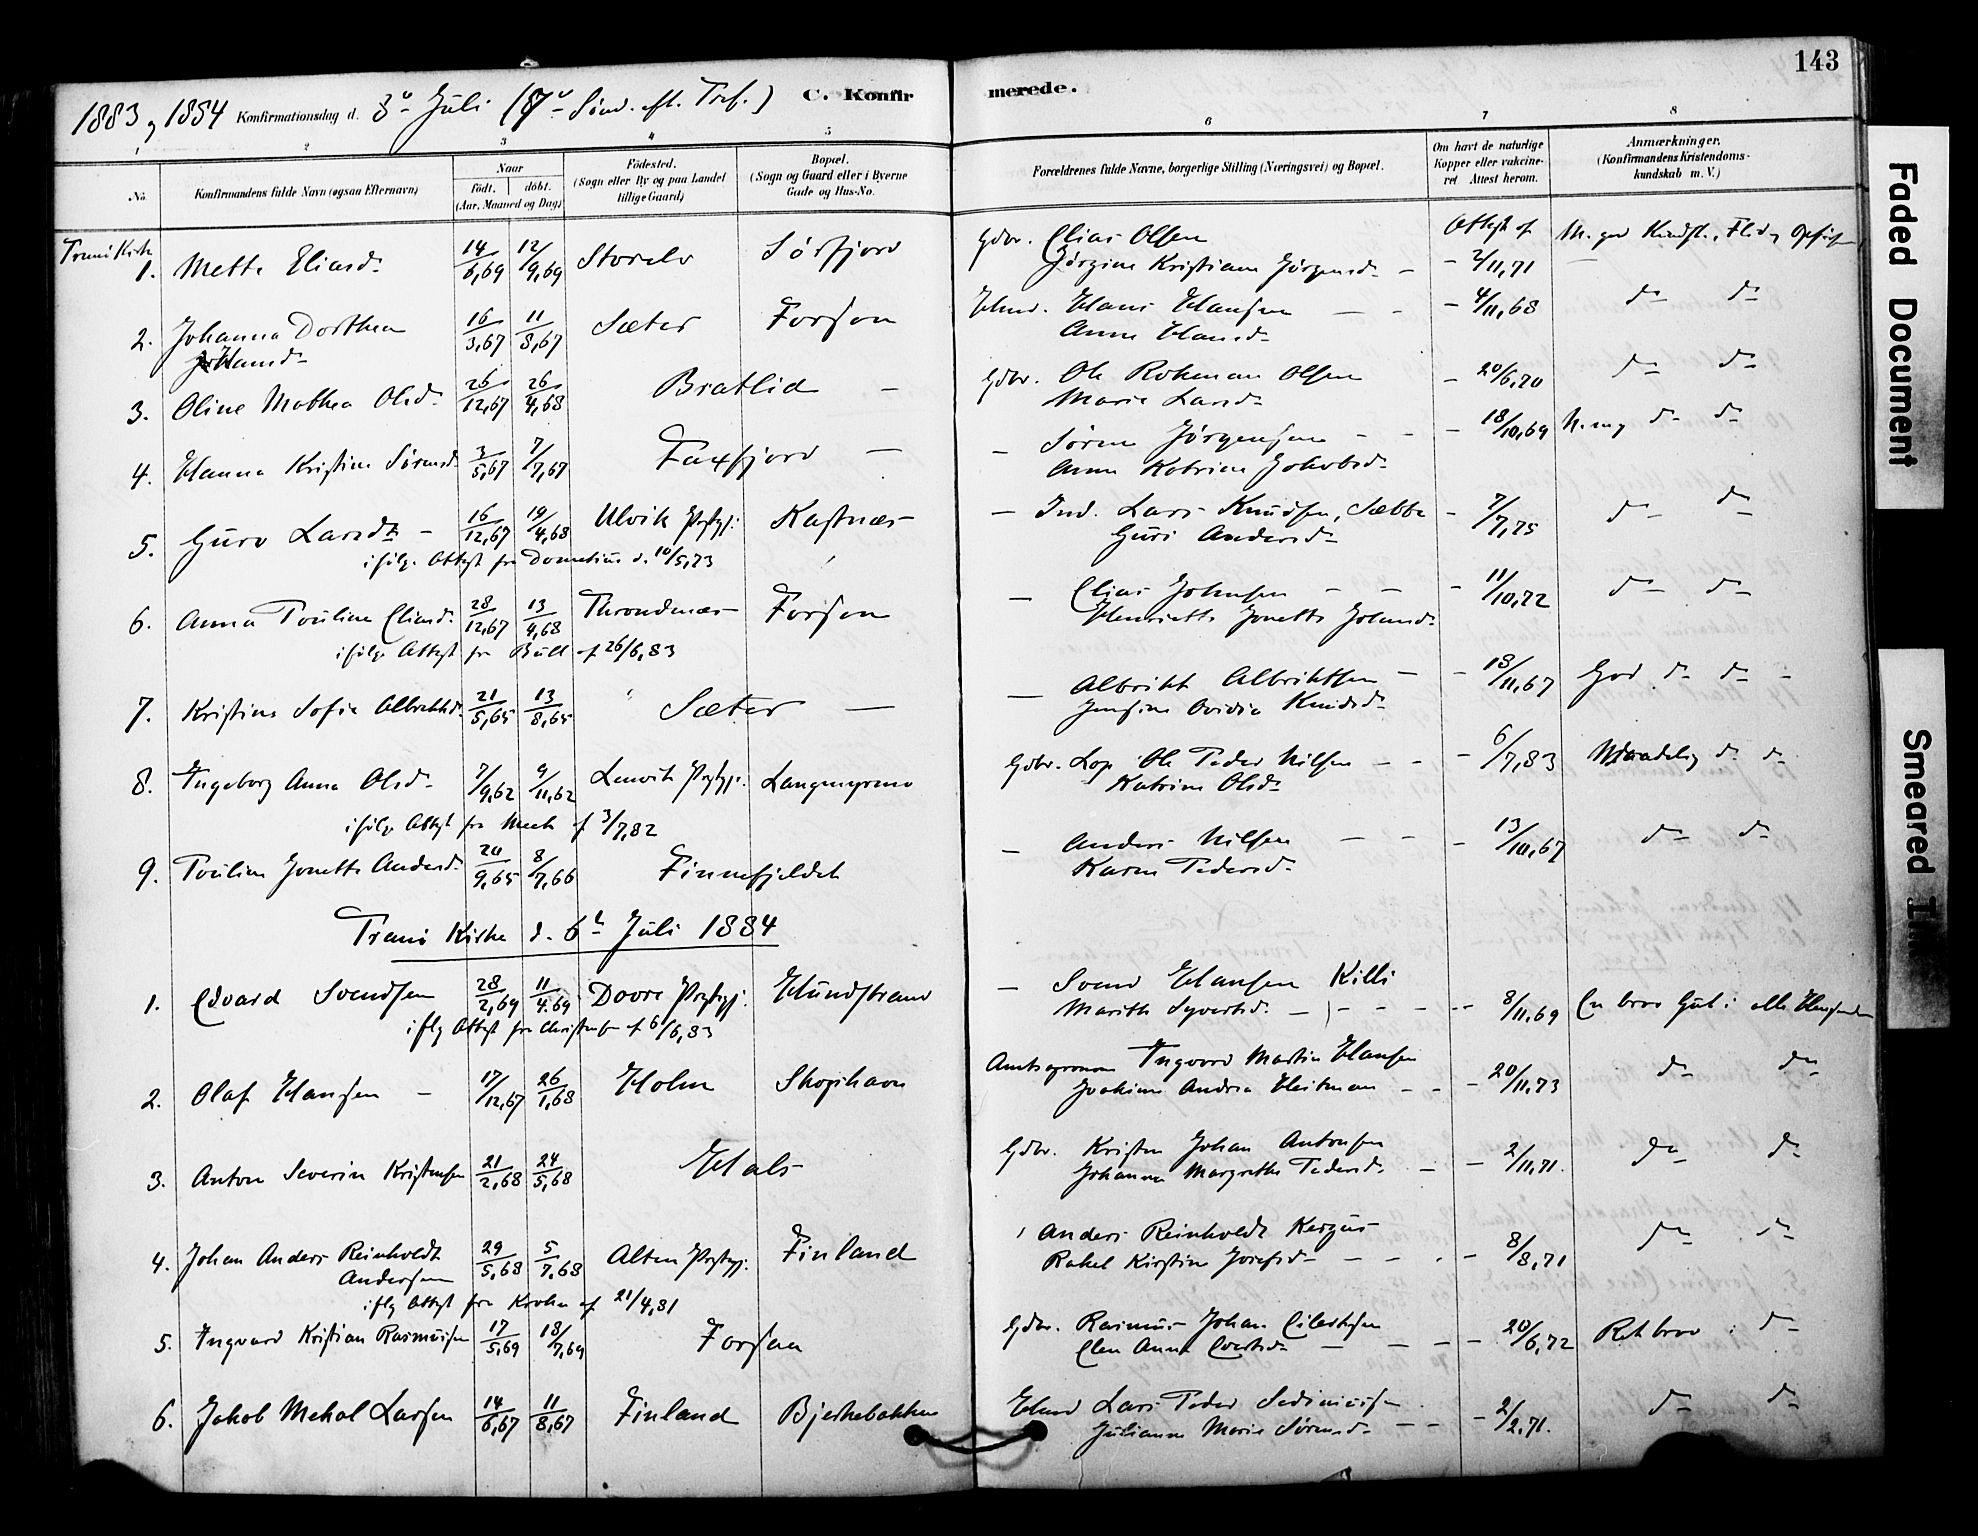 143
1883 og 1884 Konfirmationsdag d. 8de Juli (7de Sönd. eft. Tref.) C. Konfirmerede.
1 2 3 4 5 6 7 8
No.
Konfirmandens fulde Navn (ogsaa Efternavn)
Naar
födt. döbt.
(Aar, Maaned og Dag)
Födested.
(Sogn eller By og paa Landet
tillige Gaard)
Bopæl.
(Sogn og Gaard eller i Byerne
Gade og Hus-No.
Forældrenes fulde Navne, borgerlige Stilling (Næringsvei) og Bopæl.
Om havt de naturlige
Kopper eller vaccine-
ret Attest herom.
Anmærkninger.
(Konfirmandens Kristendoms-
kundskab m. V.)
Tranö Kirke
1. Mette Eliasd. 14/6,69 12/9,69 Storelv Sörfjord Gdbr. Elias Olsen Attest af M. god Kundsk., Flid og
Jörgine Kristiane Jörgensd. - 2/11,71
2. Johanna Dorthea 16/3,67 11/8,67 Sæter Forsøn Hmd. Hans Hansen - - 4/11,68 do do
Hansd. Anne Hansd.
3. Oline Mathea Olsd. 26/12,67 26/4,68 Bratlid - Gdbr. Ole Rohman Olsen - 20/6,70 do do
Marie Larsd.
4. Hanna Kristine Sörensd. 3/5,67 7/7,67 Faxfjord - - Sören Jörgensen - - 18/10,69 do do
Anne Katrine Jakobsd.
5. Guro Larsd. - 16/12,67 19/4,68 Ulvik Prstgj. Kastnæs - Ind. Lars Knudsen, Sæbbe - 7/7,75 do do
Guri Andersd.
ifölge Attest fra Dometius d. 10/5,73
6. Anna Pouline Eliasd. 28/12,67 13/4,68 Throndenæs Forsøn - Elias Johnsen - - - 11/10,72 do do
Henriette Jonette Johansd.
ifölge Attest fra Bull af 26/6,83
7. Kristine Sofie Albriktsd. 21/5,65 13/8,65 Sæter - - Albrikt Albriktsen - - 18/11,67 God do do -
Jensine Ovidia Knudsd.
8. Ingeborg Anna Olsd. 7/9,62 9/11,62 Lenvik Prstgj. Langmyrmo Gdbr. Lap Ole Peder Nilsen - - - 6/7,83 Maadelig do do
Katrine Olsd.
ifölge Attest fra Meek af 3/7,82
9. Pouline Jonette Andersd. 20/9,65 8/7,66 Finnefjeldet - Anders Nilsen - - - 13/10,67 do do
Karen Pedersd.
Tranö Kirke d. 6te Juli 1884
1. Edvard Svendsen 28/2,69 11/4,69 Dovre Prstgj. Hundstrand - Svend Hansen Killi
Marith Syvertsd. - - - - - 8/11,69 En brav Gut i alle
iflg Attest fra af 6/6,83
2. Olaf Hansen - 17/12,67 26/1,68 Holm Skogshavn Amtsagronom Ingvard Martin Hansen
Joakime Andrea Heitman - - - 20/11,73 do do
3. Anton Severin Kristensen 21/2,68 24/5,68 Hals Gdbr. Kristen Johan Antonsen
Johanna Margrethe Pedersd. - - 2/11,71. do do
4. Johan Anders Reinholdt 29/5,68 5/7,68 Alten Prstgj. Finland Anders Reinholdt Kerzus
Andersen Rakel Kirstine Josefsd. - - - - 8/8,71 do do
iflg Attest fra Krohn af 21/4,81
5. Ingvard Kristian Rasmussen 17/5,69 18/7,69 Forsaa Gdbr. Rasmus Johan
Elen Anna Evertsd. - - - 20/6,72 Ret brav : do
6. Jakob Mekal Larsen 14/6,67 11/8,67 Finland Bjerkebakken Hmd Lars Peder
Julianne Marie Sörensd. - - - 2/2,71. do do
Faded Document
Smeared